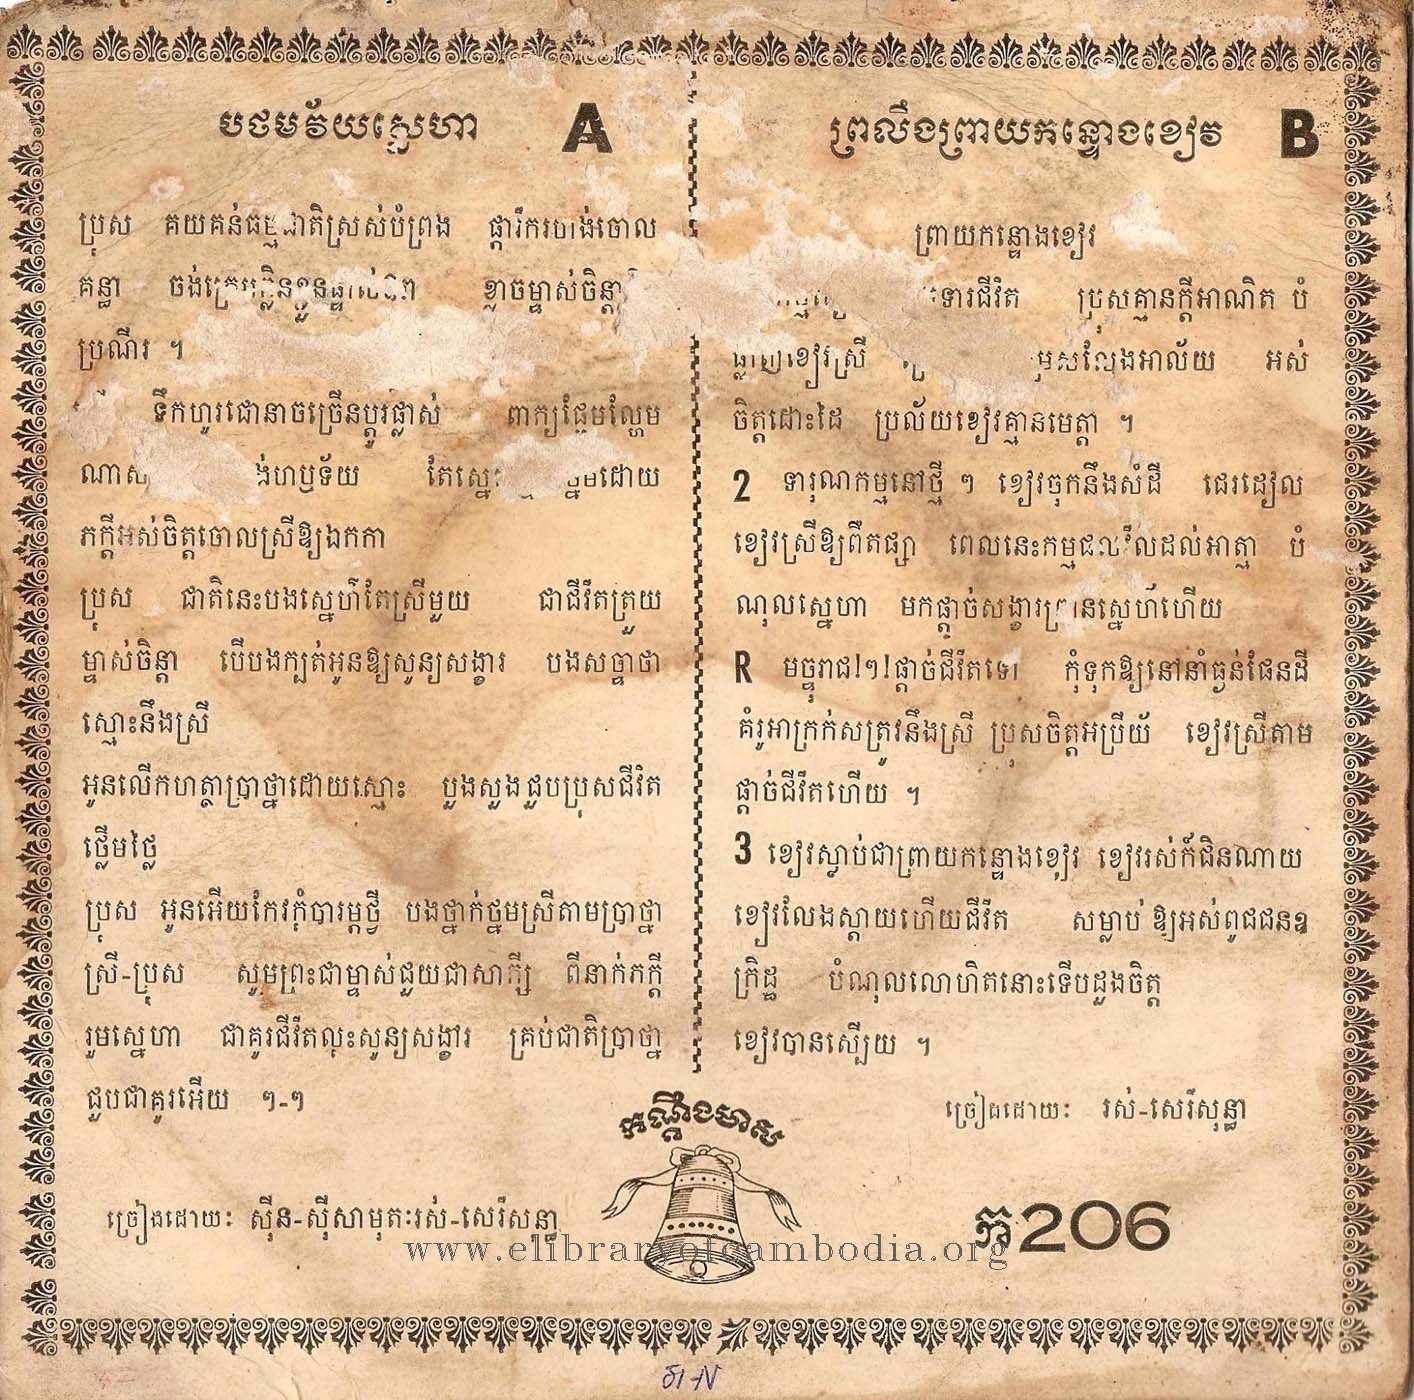 បឋមវ័យស្នេហា A
ប្រុស គយគន់ធម្មជាតិស្រស់បំព្រង ផ្ការីករបាង់ចោល
គន្ធា ចង់ក្រេប ខ្លាចម្ចាស់ចិន្តា
ប្រណីរ ។
ទឹកហូរជោនាចច្រើនប្តូរផ្លាស់ ពាក្យផ្អែមល្ហែម
ណាស ហឫទ័យ តែស្នេ ដោយ
ភក្តីអស់ចិត្តចោលស្រីឱ្យឯកកា
ប្រុស ជាតិនេះបងស្នេហ៍តែស្រីមួយ ជាជីវីតត្រួយ
ម្ចាស់ចិន្តា បើបងក្បត់អូនឱ្យសូន្យសង្ខារ បងសច្ចាថា
ស្មោះនឹងស្រី
អូនលើកហត្ថាប្រាថ្នាដោយស្មោះ បួងសួងជួបប្រុសជីវិត
ថ្លើមថ្លៃ
ប្រុស អូនអើយកែវកុំបារម្ភថ្វី បងថ្នាក់ថ្នមស្រីតាមប្រាថ្នា
ស្រី-ប្រុស សូមព្រះជាម្ចាស់ជួយជាសាក្សី ពីនាក់ភក្តី
រួមស្នេហា ជាគូរជីវីតលុះសូន្យសង្ខារ គ្រប់ជាតិប្រាថ្នា
ជួបជាគូរអើយ ៗ-ៗ
ច្រៀងដោយ: ស៊ីន-ស៊ីសាមុត:រស់-សេរីសុន្ធា
ព្រលឹងព្រាយកន្ទោងខៀវ B
ព្រាយកន្ទោងខៀវ
ទារជីវិត ប្រុសគ្មានក្តីអាណិត បំ
ផ្លាញខៀវស្រី លែងអាល័យ អស់
ចិត្តដោះដៃ ប្រល័យខៀវគ្មានមេត្តា ។
2 ទារុណកម្មនៅថ្មី ៗ ខៀវចុកនឹងសំដី ជេរដៀល
ខៀវស្រីឱ្យពីតផ្សា ពេលនេះកម្មផលវិលដល់អាត្មា បំ
ណុលស្នេហា មកផ្តាច់សង្ខារព្រានស្នេហ៍ហើយ
R មច្ចុរាជ!ៗ!ផ្តាច់ជីវីតទៅ កុំទុកឱ្យនៅនាំធ្ងន់ផែនដី
គំរូអាក្រក់សត្រូវនឹងស្រី ប្រុសចិត្តអប្រីយ៍ ខៀវស្រីតាម
ផ្តាច់ជីវីតហើយ ។
3 ខៀវស្លាប់ជាព្រាយកន្ទោងខៀវ ខៀវរស់ក៍ជិនណាយ
ខៀវលែងស្តាយហើយជីវីត សម្លាប់ឱ្យអស់ពូជជនឧ
ក្រិដ្ឋ បំណុលលោហិតនោះទើបដួងចិត្ត
ខៀវបានស្បើយ ។
ច្រៀងដោយ: រស់-សេរីសុន្ធា
កណ្ដឹងមាស
ក206
www.elibraryofcambodia.org